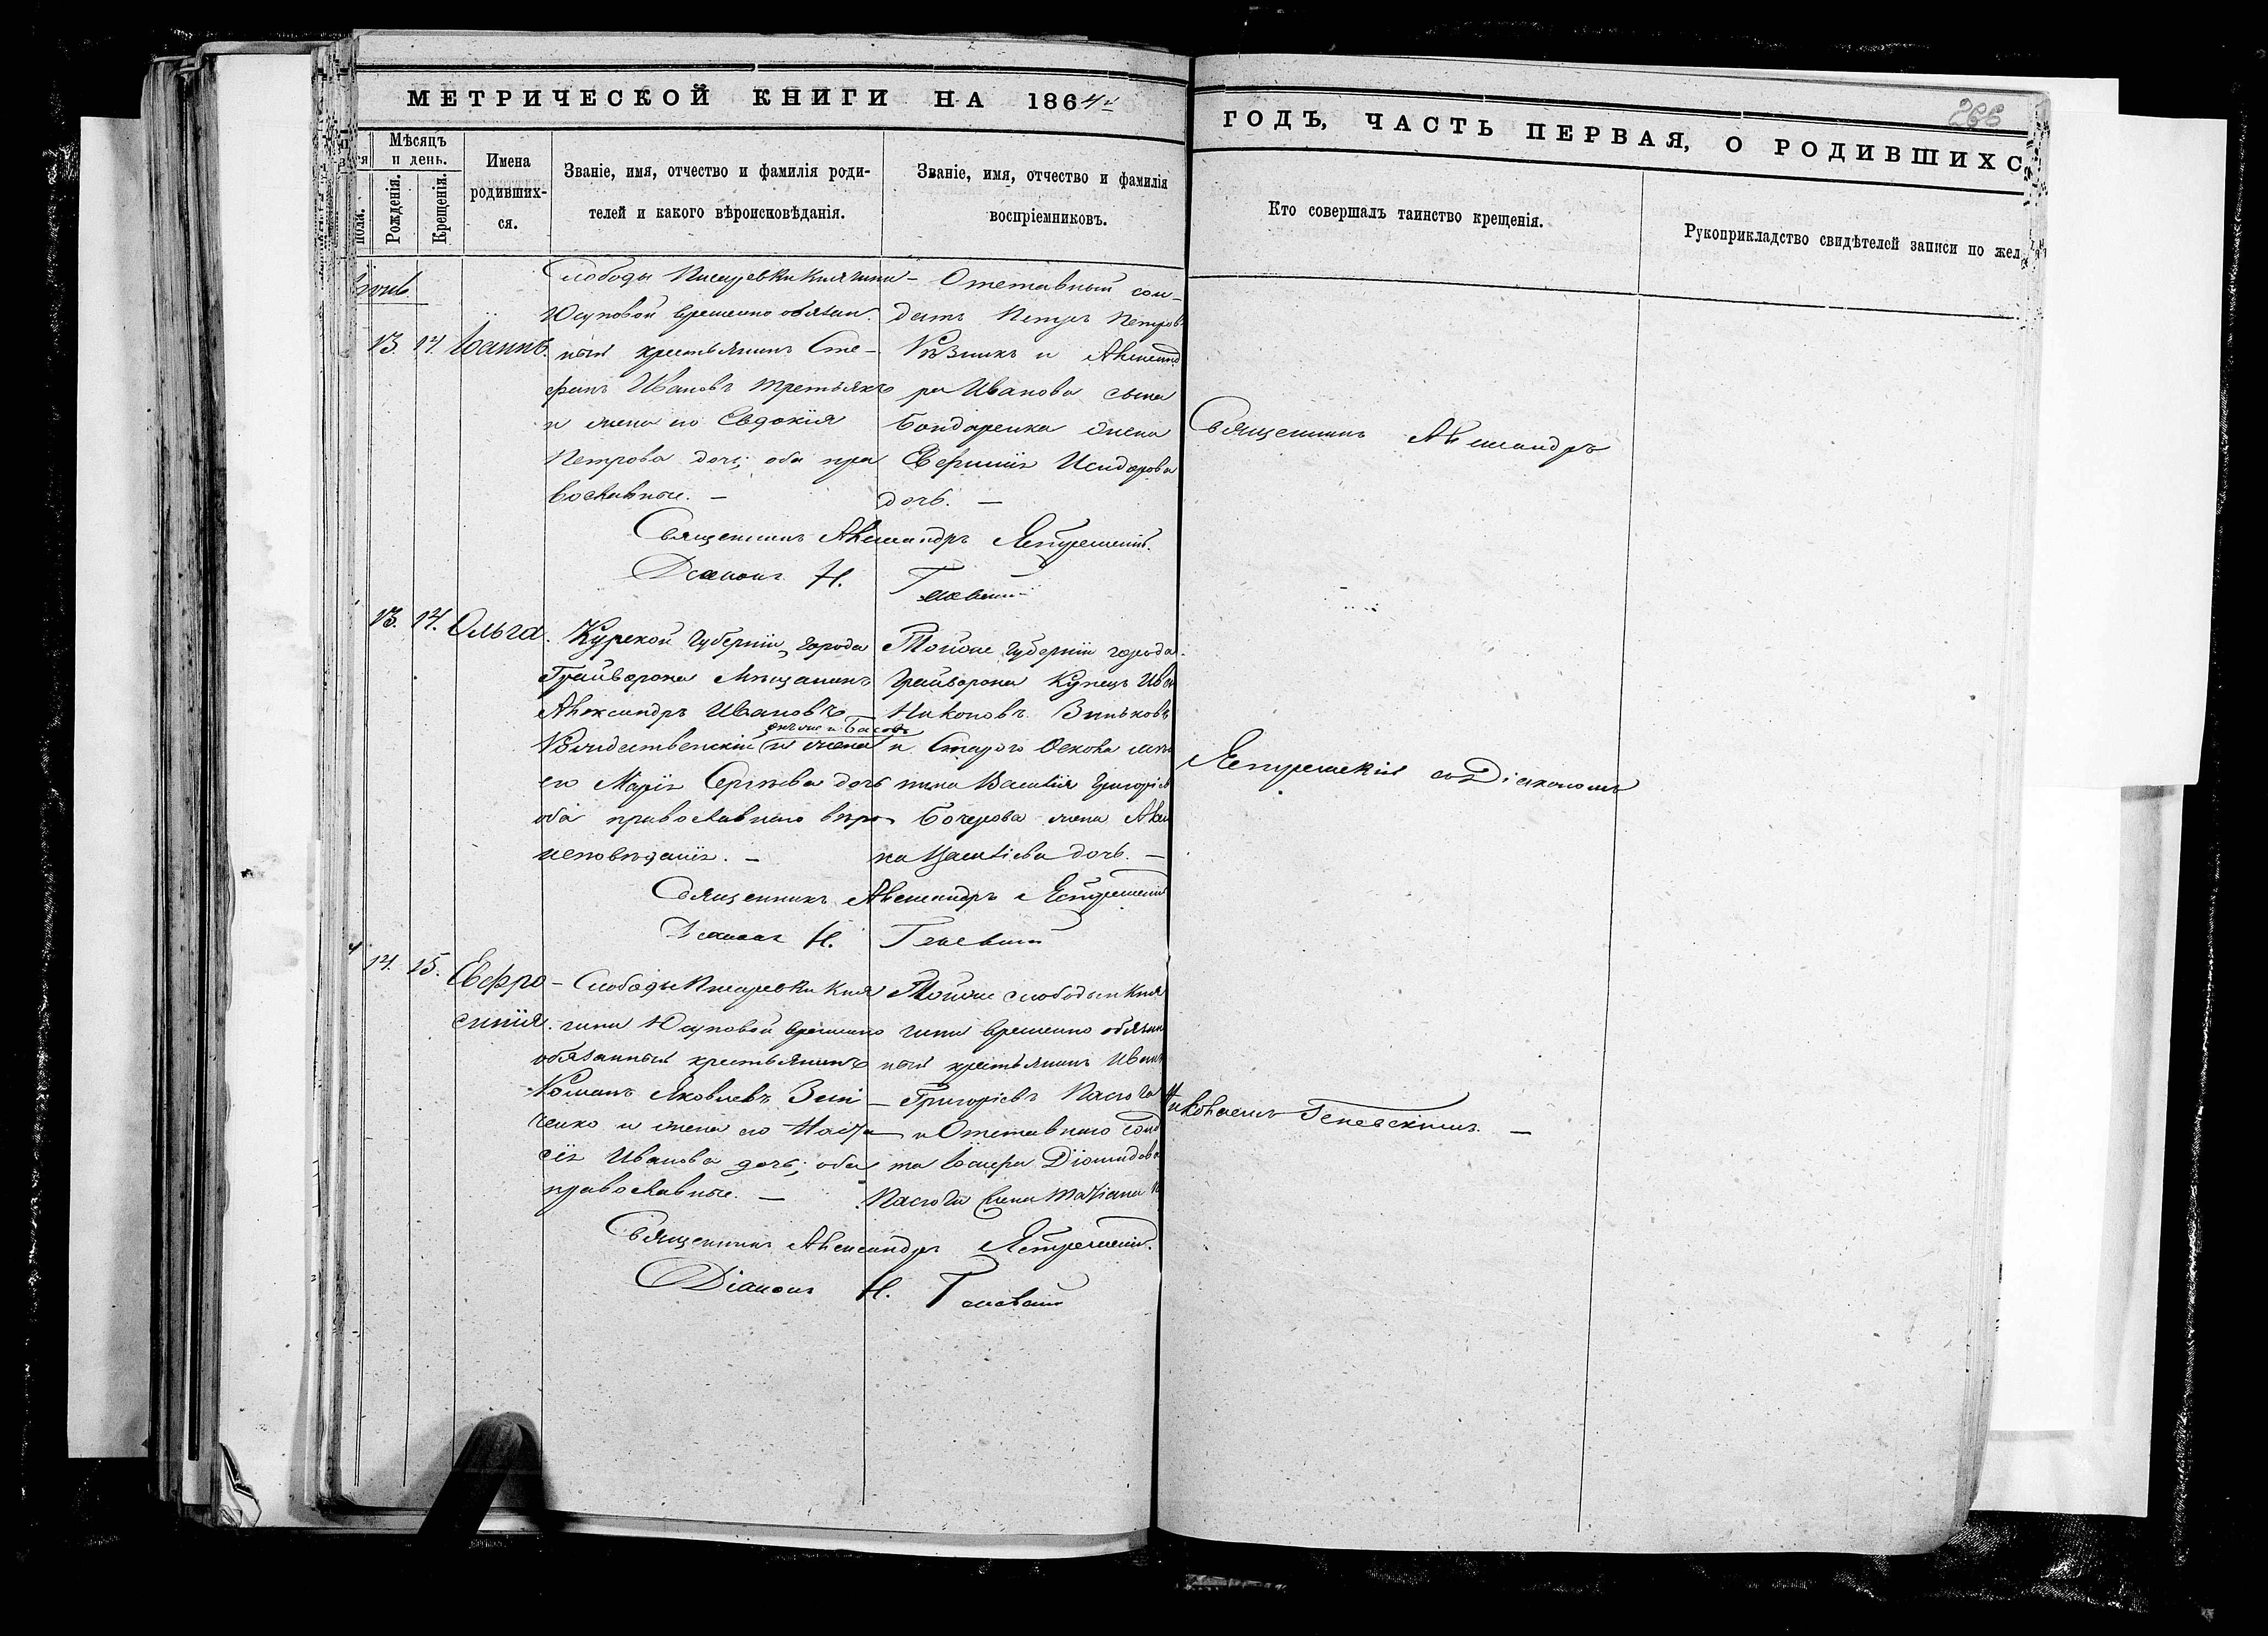 МЕТРИЧЕСКОЙ КНИГИ НА 1864й
ГОДЪ, ЧАСТЬ ПЕРВАЯ, О РОДИВШИХС
266
Мѣсяцъ и день.
пола.
Рожденія.
Крещенія.
Имена родивших-ся.
Званіе, имя, отчество и фамилія роди-
телей и какого вѣроисповѣданія.
Званіе, имя, отчество и фамилія
воспріемниковъ.
Кто совершалъ таинство крещенія.
Рукоприкладство свидѣтелей записи по жел
13. 14. Іоаннъ.
Слободы Писаревки Княгини
Юсуповой временно обязан
ный крестьянинъ Сте-
фанъ Ивановъ Третьякъ
и жена его Евдокія
Петрова дочь; оба пра
вославные. –
Отставный сол-
датъ Петръ Петров
Рѣзникъ и Александ
ра Иванова сына
Бондаренка жена
Евфимія Исидорова
дочь. –
Священникъ Александръ Ястремскій.
Діаконъ Н. Геневскій
13. 14. Ольга.
Курской Губерніи, города
Грайворона Мѣщанинъ
Александръ Ивановъ
Рождественскій и жена
онъ же и Басовъ
его Марія Сергѣева дочь
оба православнаго вѣро-
исповѣданія. –
Тойже Губерніи города
Грайворона Купецъ Иван
Никоновъ Зиньковъ
и Стараго Оскола мѣщ
нина Василія Григорієв
Бочерова жена
Василіева дочь. –
Священникъ Александръ Ястремскій
Діаконъ Н. Геневскій
14. 15. Евфро-
синія.
Слободы Писаревки Кня
гини Юсуповой временно
обязанный крестьянинъ
Романъ Яковлевъ Зин-
ченко и жена его Наста
сія Иванова дочь; оба
православные. –
Тойже слободы и Кня
гини временно обязан
ный крестьянинъ Иванъ
Григоріевъ Пасюга
и Отставнаго солд
та Іосифа Діомидова
Пасюги жена Татіана
Священникъ Александръ Ястремскій.
Діаконъ Н. Геневскій
Священникъ Александръ
Ястремскій съ Діакономъ
Николаемъ Геневскимъ. –